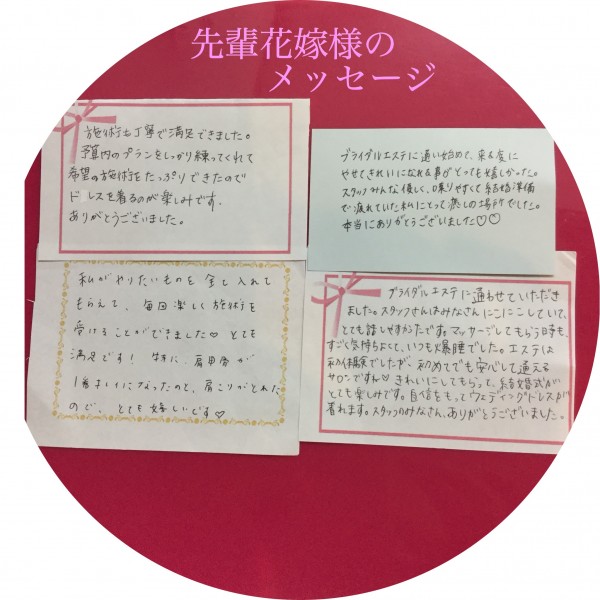 先輩花嫁様の
メッセージ
施術も丁寧で満足できました。
予算内のプランをしっかり練ってくれて
希望の施術をたっぷりできたので
ドレスを着るのが楽しみです。
ありがとうございました。
ブライダルエステに通い始めて、来る度に
やせてきれいになれる事がとっても嬉しかった。
スタッフみんな優しく、喋りやすくて結婚準備
で疲れていた私にとって癒しの場所でした。
本当にありがとうございました♡♡
私がやりたいものを全て入れて
もらえて、毎回楽しく施術を
受けることができました♡ とても
満足です！ 特に、肩甲骨が
1番きれいになったのと、肩こりがとれた
ので、とても嬉しいです♡
ブライダルエステに通わせていただき
ました。スタッフさんはみなさんにこにこしていて、
とても話しやすかったです。マッサージしてもらう時も、
すごく気持ちよくて、いつも爆睡でした。エステは
初体験でしたが、初めてでも安心して通える
サロンですね♡ きれいにしてもらって、結婚式が
とても楽しみです。自信をもってウェディングドレスが
着れます。スタッフのみなさん、ありがとうございました。